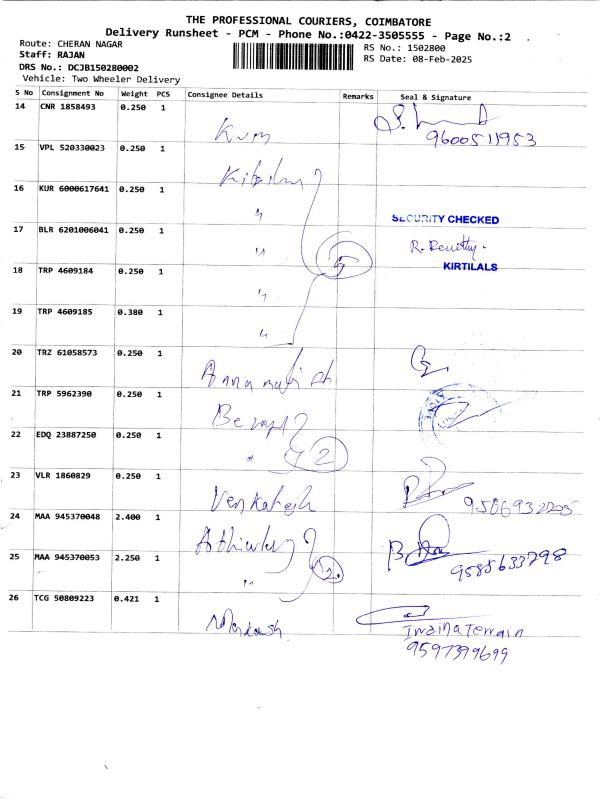 THE PROFESSIONAL COURIERS, COIMBATORE
Delivery Runsheet - PCM - Phone No.:0422-3505555 - Page No.:2
Route: CHERAN NAGAR
RS No.: 1502800
Staff: RAJAN
RS Date: 08-Feb-2025
DRS No.: DCJB150280002
Vehicle: Two Wheeler Delivery
S No Consignment No Weight PCS Consignee Details Remarks Seal & Signature
14 CNR 1858493 0.250 1
9600511953
15 VPL 520330023 0.250 1
16 KUR 6000617641 0.250 1 "
SECURITY CHECKED
17 BLR 6201006041 0.250 1 " 5
KIRTILALS
18 TRP 4609184 0.250 1 "
19 TRP 4609185 0.380 1 "
20 TRZ 61058573 0.250 1
21 TRP 5962390 0.250 1
22 EDQ 23887250 0.250 1 " 2
23 VLR 1860829 0.250 1 Venkatesh
24 MAA 945370048 2.400 1
9585633798
25 MAA 945370053 2.250 1 " 2
26 TCG 50809223 0.421 1
9597399699